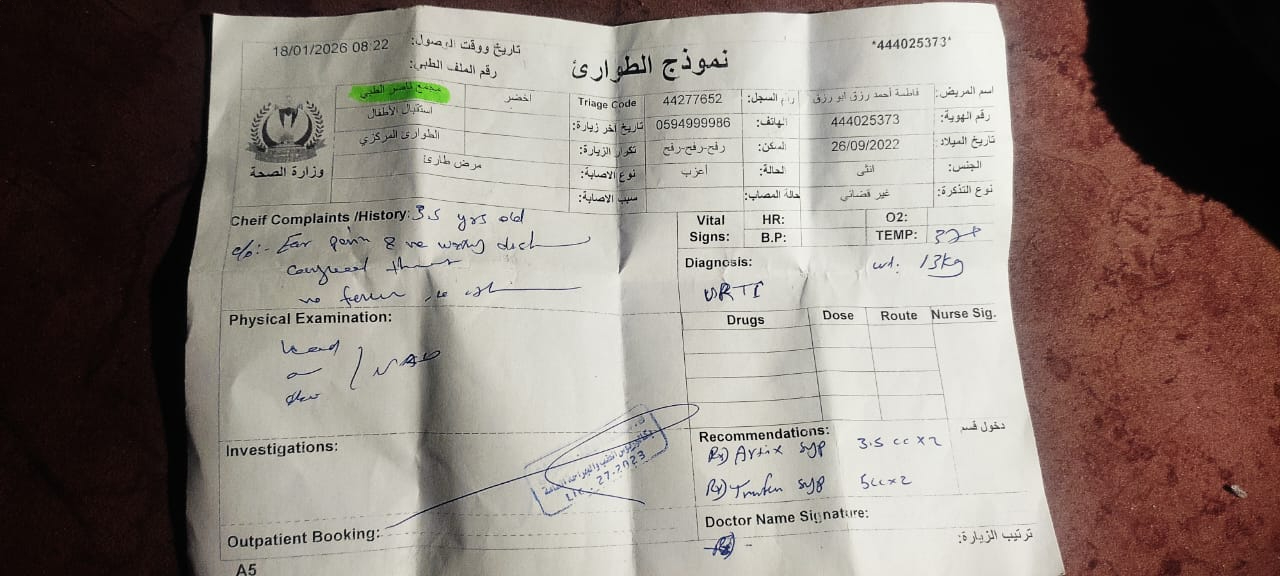 18/01/2026 08:22 تاريخ ووقت الوصول:
*444025373*
رقم الملف الطبي:
نموذج الطوارئ
اسم المريض: فاطمة أحمد رزق ابو رزق
رقم السجل: 44277652
Triage Code اخضر
مجمع ناصر الطبي
رقم الهوية: 444025373
الهاتف: 0594999986
تاريخ آخر زيارة:
استقبال الأطفال
تاريخ الميلاد: 26/09/2022
السكن: رفح-رفح-رفح
تكرار الزيارة:
الطوارئ المركزي
الجنس: انثى
الحالة: أعزب
نوع الاصابة: مرض طارئ
نوع التذكرة: غير قضائي
حالة المصاب:
سبب الاصابة:
وزارة الصحة
Cheif Complaints /History: 3.5 yrs old
c/o:- Ear pain &
no fever
Vital Signs: HR: O2:
B.P: TEMP:
Diagnosis: wt: 13kg
URTI
Physical Examination:
NAD
Drugs Dose Route Nurse Sig.
Investigations:
LIC. 27-2023
Recommendations:
دخول قسم
Syp 3.5 cc x 2
Syp 5cc x 2
Outpatient Booking:
Doctor Name Signature:
ترتيب الزيارة:
A5